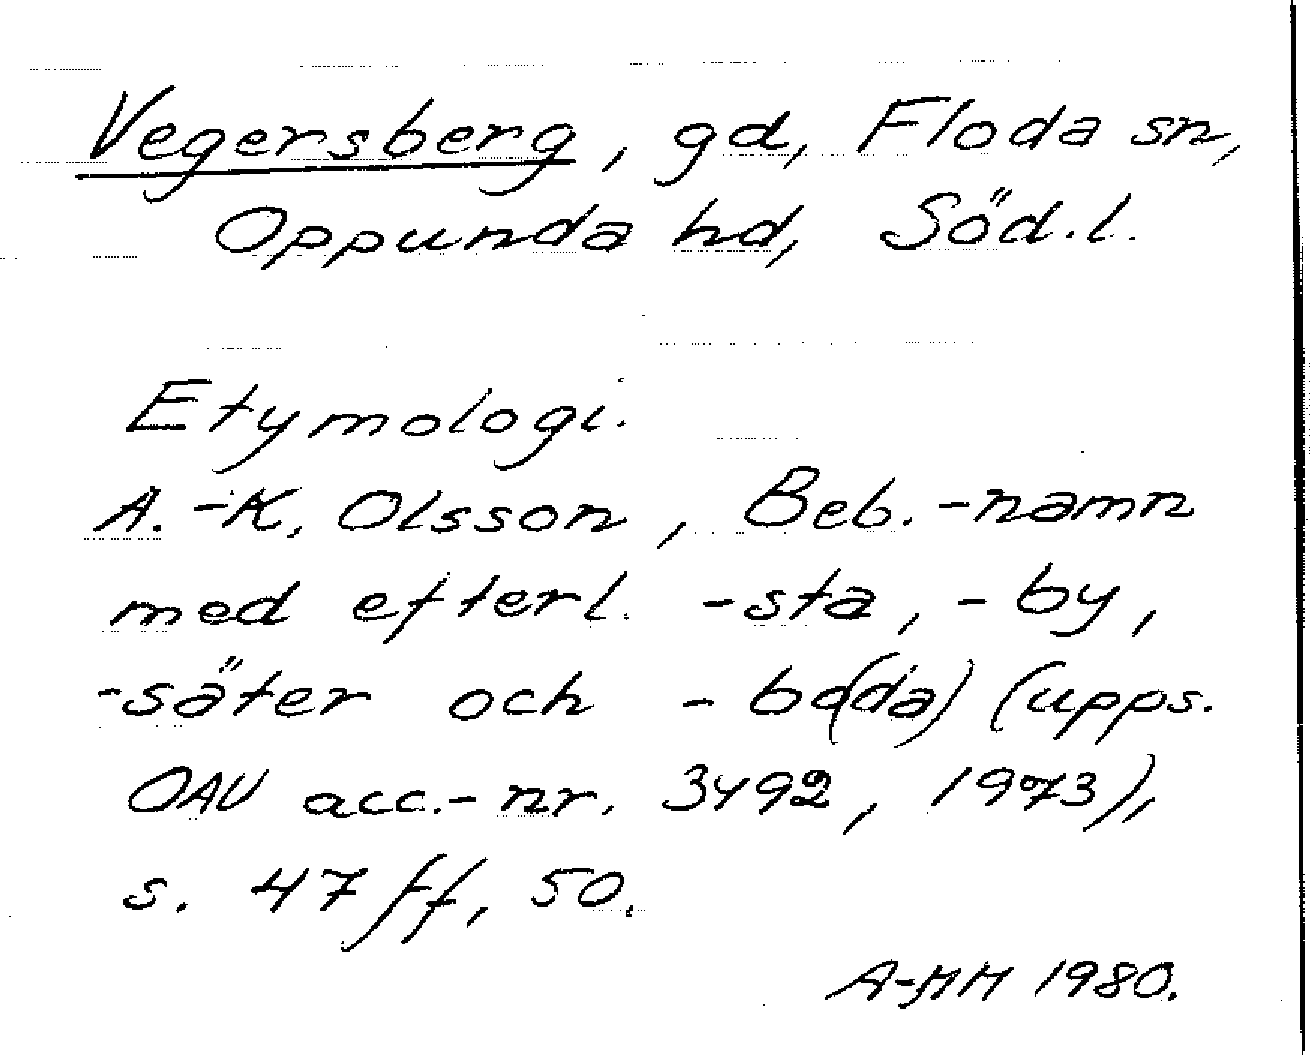 Vegersberg, gd, Floda sn,
Oppunda hd, Söd.l.
Etymologi.
A.-K. Olsson, Beb.-namn
med efterl. -sta, -by,
-säter och -bo(da) (upps.
OAU acc.-nr. 3492, 1973),
s. 47 ff, 50.
A-MM 1980.